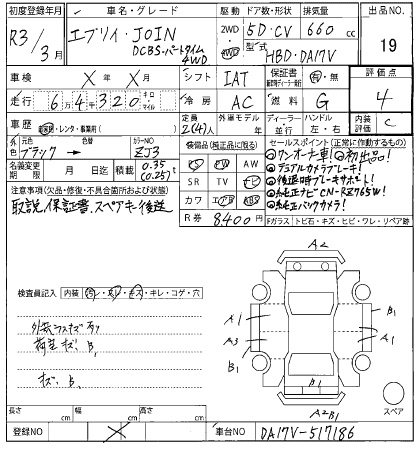 初度登録年月 車名・グレード 駆動 ドア数・形状 排気量 出品NO.
R3/3月 エブリイ・JOIN 2WD 5D・CV 660cc 19
DCBS・パートタイム4WD 4WD 型式 HBD-DA17V
車検 X年X月 シフト IAT 保証書 有・無 評価点
走行 64320 キロ マイル 冷房 AC 燃料 G 4
車歴 自家用・レンタ・事業用( ) 定員 2(4)人 外車モデル 年 ディーラー・並行 ハンドル 左・右 内装 C
色 元色 ブラック → 色替 カラーNO ZJ3 装備品(純正品に限る) セールスポイント(正常に作動するもの)
名義変更期限 月 日 積載 0.35(0.25)t PS PW AW
SR TV ナビ
カワ エアB ABS
R券 8,400円
◎ワンオーナー車!◎初出品!
◎デュアルカメラブレーキ!
◎後退時ブレーキサポート!
◎純正ナビCN-RZ765W!
◎純正バックカメラ!
注意事項(欠品・修復・不具合箇所および状態)
取説、保証書、スペアキー後送
Fガラス トビ石・キズ・ヒビ・ワレ・リペア跡
検査員記入 内装 汚レ・スレ・キス・キレ・コゲ・穴
外装うすキズ有り
荷室キズ、B1
キズ、B1
A2
A1
A3
B1
B1
A1
B1
A2B1
スペア
長さ cm 幅 cm 高さ cm
登録NO X 車台NO DA17V-517186